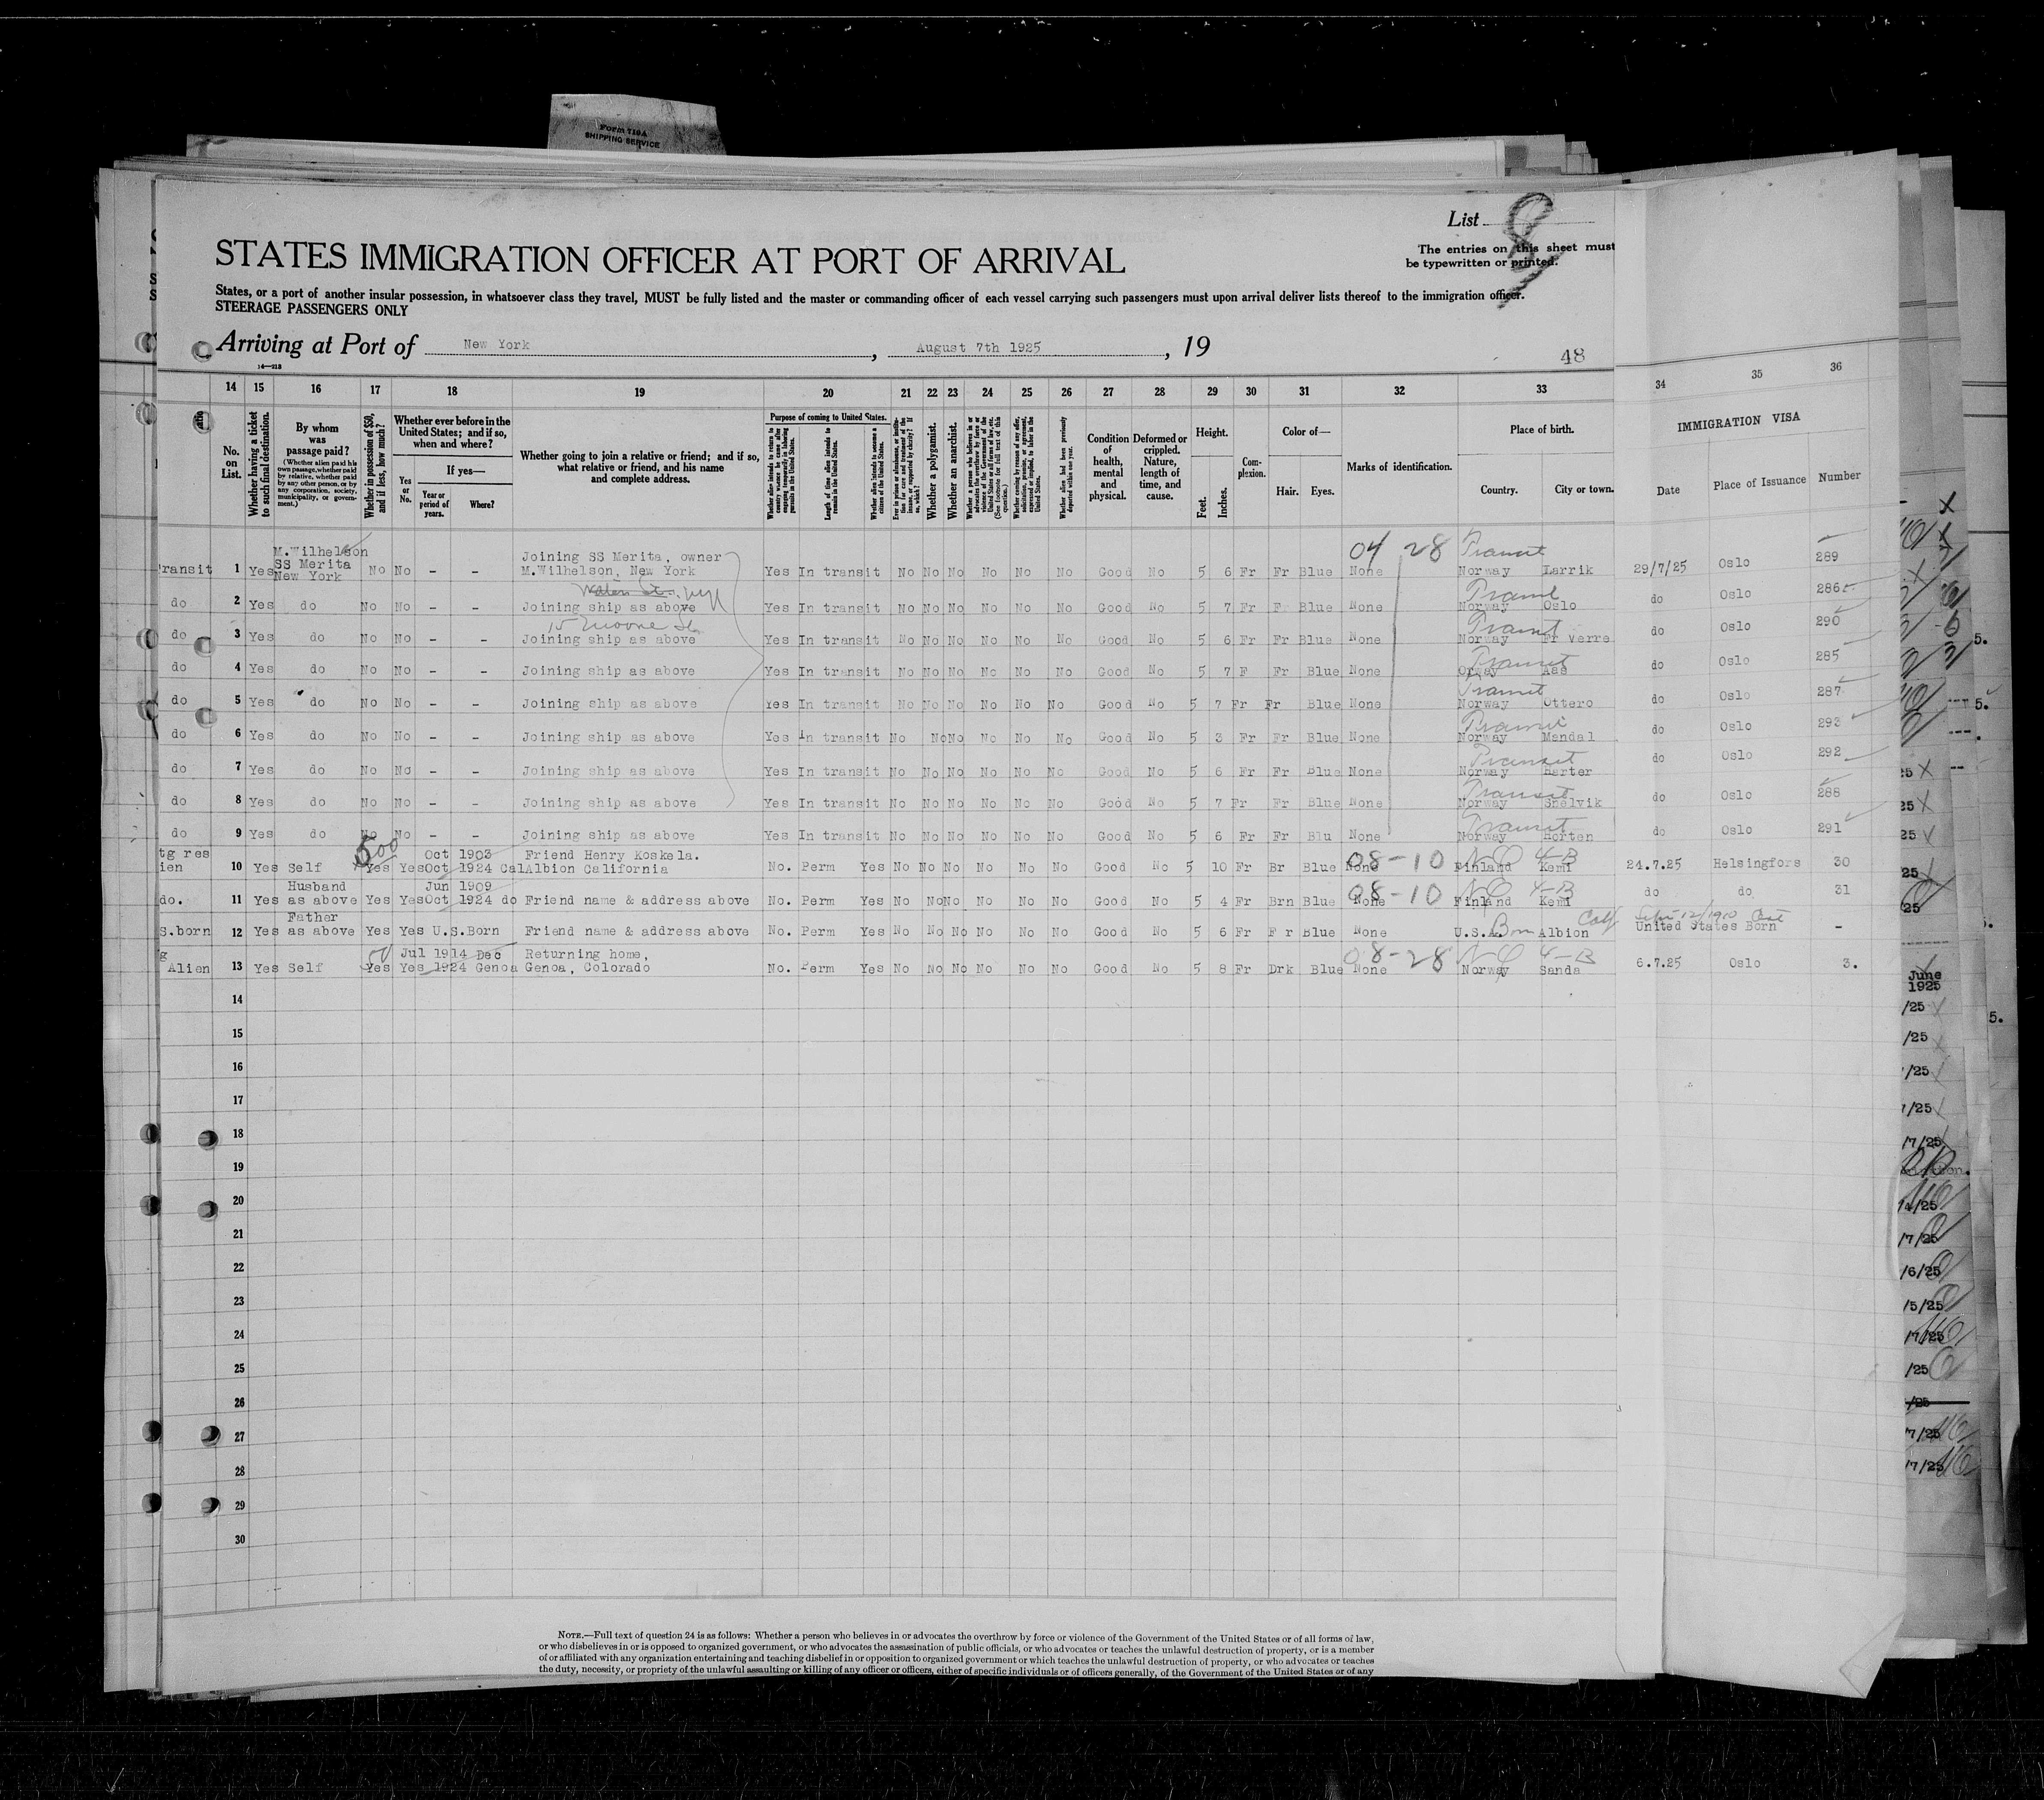 Form 719A
SHIPPING SERVICE
List 8
The entries on this sheet must
be typewritten or printed.
STATES IMMIGRATION OFFICER AT PORT OF ARRIVAL
States, or a port of another insular possession, in whatsoever class they travel, MUST be fully listed and the master or commanding officer of each vessel carrying such passengers must upon arrival deliver lists thereof to the immigration officer.
STEERAGE PASSENGERS ONLY
Arriving at Port of New York, August 7th 1925, 19
14—218
48
14 15 16 17 18 19 20 21 22 23 24 25 26 27 28 29 30 31 32 33 34 35 36
No. on List.
Whether having a ticket to such final destination.
By whom was passage paid?
(Whether alien paid his own passage, whether paid by relative, whether paid by any other person, or by any corporation, society, municipality, or government.)
Whether in possession of $50, and if less, how much?
Whether ever before in the United States; and if so, when and where?
Yes or No.
If yes—
Year or period of years.
Where?
Whether going to join a relative or friend; and if so, what relative or friend, and his name and complete address.
Purpose of coming to United States.
Length of time alien intends to remain in the United States.
Whether alien intends to become a citizen of the United States.
Whether a polygamist.
Whether an anarchist.
Whether alien had been previously deported within one year.
Condition of health, mental and physical.
Deformed or crippled. Nature, length of time, and cause.
Height.
Feet. Inches.
Complexion.
Color of—
Hair. Eyes.
Marks of identification.
Place of birth.
Country. City or town.
IMMIGRATION VISA
Date Place of Issuance Number
04 28 Transit
M.Wilhelson Joining SS Merita, owner
ransit 1 Yes SS Merita New York No No - - M.Wilhelson, New York Yes In transit No No No No No No Good No 5 6 Fr Fr Blue None Norway Larrik 29/7/25 Oslo 289
Water St. NY Transit
do 2 Yes do No No - - Joining ship as above Yes In transit No No No No No No Good No 5 7 Fr F Blue None Norway Oslo do Oslo 286
15 Moore St Transit
do 3 Yes do No No - - Joining ship as above Yes In transit No No No No No No Good No 5 6 Fr Fr Blue None Norway Fr Verre do Oslo 290
Transit
do 4 Yes do No No - - Joining ship as above Yes In transit No No No No No No Good No 5 7 F Fr Blue None Orway Aas do Oslo 285
Transit
do 5 Yes do No No - - Joining ship as above Yes In transit No No No No No No Good No 5 7 Fr Fr Blue None Norway Ottero do Oslo 287
Transit
do 6 Yes do No No - - Joining ship as above Yes In transit No No No No No No Good No 5 3 Fr Fr Blue None Norway Mandal do Oslo 293
Transit
do 7 Yes do No No - - Joining ship as above Yes In transit No No No No No No Good No 5 6 Fr Fr Blue None Norway do Oslo 292
Transit
do 8 Yes do No No - - Joining ship as above Yes In transit No No No No No No Good No 5 7 Fr Fr Blue None Norway Snelvik do Oslo 288
Transit
do 9 Yes do No No - - Joining ship as above Yes In transit No No No No No No Good No 5 6 Fr Fr Blu None Norway Horten do Oslo 291
tg res 500 Oct 1903 Friend Henry Koskela. 08-10 NQ 4-B
ien 10 Yes Self Yes Yes Oct 1924 Cal Albion California No. Perm Yes No No No No No No Good No 5 10 Fr Br Blue None Finland Kemi 24.7.25 Helsingfors 30
Husband Jun 1909 08-10 NQ 4-B
do. 11 Yes as above Yes Yes Oct 1924 do Friend name & address above No. Perm Yes No No No No No No Good No 5 4 Fr Brn Blue None Finland Kemi do do 31
Father Calif
S.born 12 Yes as above Yes Yes U.S.Born Friend name & address above No. Perm Yes No No No No No No Good No 5 6 Fr F r Blue None U.S.A. Born Albion United States Born -
g Jul 1914 Dec Returning home, 08-28 NQ 4-B
Alien 13 Yes Self Yes Yes 1924 Genoa Genoa, Colorado No. Perm Yes No No No No No No Good No 5 8 Fr Drk Blue None Norway Sanda 6.7.25 Oslo 3.
14
15
16
17
18
19
20
21
22
23
24
25
26
27
28
29
30
June
1925
NOTE.—Full text of question 24 is as follows: Whether a person who believes in or advocates the overthrow by force or violence of the Government of the United States or of all forms of law,
or who disbelieves in or is opposed to organized government, or who advocates the assassination of public officials, or who advocates or teaches the unlawful destruction of property, or is a member
of or affiliated with any organization entertaining and teaching disbelief in or opposition to organized government or which teaches the unlawful destruction of property, or who advocates or teaches
the duty, necessity, or propriety of the unlawful assaulting or killing of any officer or officers, either of specific individuals or of officers generally, of the Government of the United States or of any